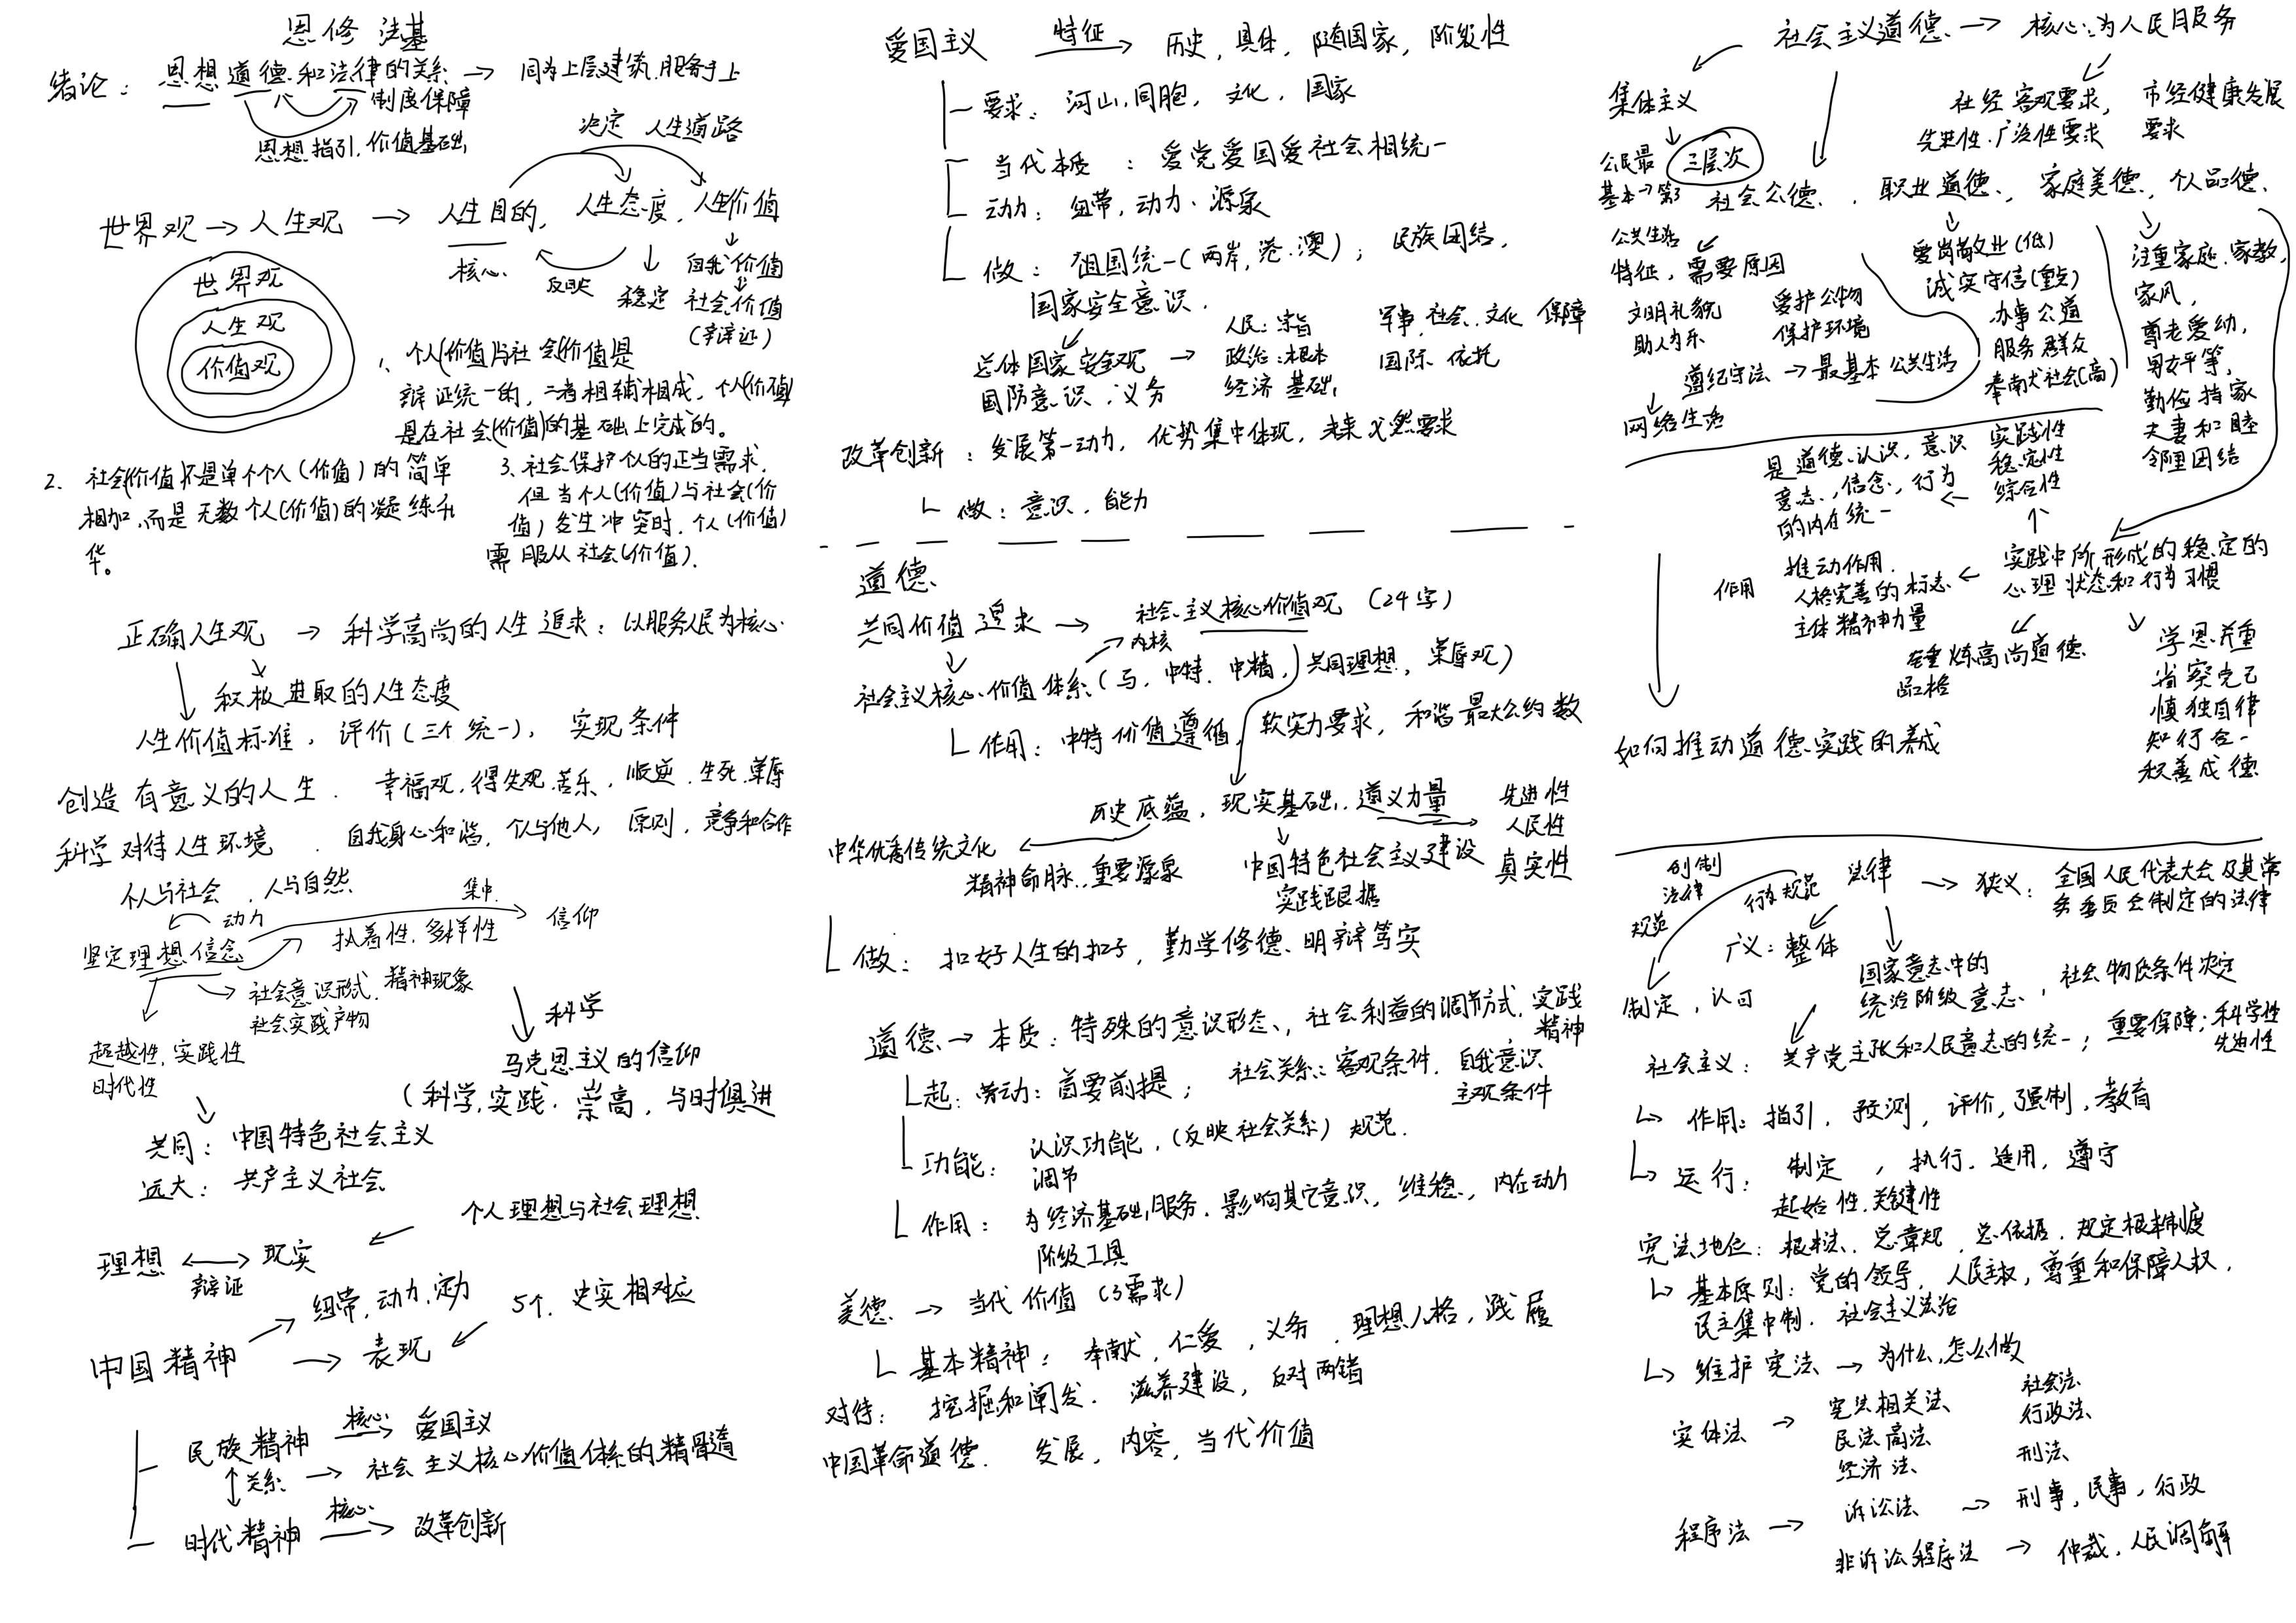 思修 法基
绪论： 思想道德和法律的关系 → 同为上层建筑，服务于上
制度保障
思想指引，价值基础
决定 人生道路
世界观 → 人生观 → 人生目的， 人生态度， 人生价值
核心 反映 稳定
自我价值
社会价值
（辩证）
世界观
人生观
价值观
1、 个人(价值)与社会(价值)是
辩证统一的，二者相辅相成，个人(价值)
是在社会(价值)的基础上完成的。
2、 社会(价值)不是单个个人（价值）的简单
相加，而是无数个人(价值)的凝练升
华。
3、社会保护个人的正当需求，
但当个人(价值)与社会(价
值）发生冲突时，个人（价值）
需服从社会(价值)．
正确人生观 → 科学高尚的人生追求：以服务人民为核心
积极进取的人生态度
人生价值标准，评价（三个统一）， 实现条件
创造有意义的人生． 幸福观，得失观，苦乐，顺逆，生死，荣辱
科学对待人生环境 ． 自我身心和谐，个人与他人， 原则，竞争和合作
个人与社会 ，人与自然
动力 集中
坚定理想信念 执着性，多样性 信仰
社会意识形式，精神现象
社会实践产物
超越性，实践性
时代性
科学
马克思主义的信仰
（科学，实践，崇高，与时俱进
共同： 中国特色社会主义
远大： 共产主义社会
个人理想与社会理想
理想 ↔ 现实
辩证
纽带，动力，定力
5个，史实相对应
中国精神 → 表现
民族精神 核心 爱国主义
关系 → 社会主义核心价值体系的精髓
时代精神 核心 改革创新
爱国主义 特征 历史，具体，随国家，阶级性
要求： 河山，同胞， 文化， 国家
当代本质 ： 爱党爱国爱社会相统一
动力： 纽带，动力、源泉
做： 祖国统一（两岸，港、澳）； 民族团结，
国家安全意识．
总体国家安全观 →
人民：宗旨
政治：根本
经济 基础，
军事，社会，文化 保障
国际 依托
国防意识，义务
改革创新 ： 发展第一动力， 优势集中体现，未来必然要求
做：意识，能力
道德
共同价值追求 → 社会主义核心价值观 （24字）
内核
社会主义核心价值体系（马，中特，中精，共同理想， 荣辱观）
作用： 中特价值遵循，软实力要求，和谐最大公约数
历史底蕴， 现实基础， 道义力量
先进性
人民性
真实性
中华优秀传统文化
精神命脉，重要源泉
中国特色社会主义建设
实践跟据
做： 扣好人生的扣子，勤学修德、明辩笃实
道德 → 本质：特殊的意识形态，社会利益的调节方式，实践
精神
起：劳动：首要前提； 社会关系：客观条件， 自我意识
主观条件
功能： 认识功能，（反映社会关系）规范．
调节
作用： 为经济基础服务，影响其它意识，维稳，内在动力
阶级工具
美德 → 当代价值（3需求）
基本精神： 奉献，仁爱 ，义务 ，理想人格，践履
对待： 挖掘和阐发． 滋养建设，反对两错
中国革命道德． 发展，内容，当代价值
社会主义道德 → 核心：为人民服务
集体主义
社经客观要求， 市经健康发展
先进性、广泛性要求 要求
公民最 三层次
基本→第3
社会公德． 职业道德， 家庭美德，个人品德
公共生活
特征，需要原因
文明礼貌 爱护公物
助人为乐 保护环境
遵纪守法 → 最基本 公共生活
网络生活
爱岗敬业（低）
诚实守信（重点）
办事公道
服务群众
奉献社会(高）
注重家庭，家教，
家风，
尊老爱幼，
男女平等，
勤俭持家
夫妻和睦
邻里团结
是道德认识，意识
意志，信念，行为
的内在统一
实践性
稳定性
综合性
作用
推动作用
人格完善的标志
主体精神力量
实践中所形成的稳定的
心理状态和行为习惯
锤炼高尚道德
品格
学思并重
省察克己
慎独自律
知行合一
积善成德
如何推动道德实践的养成
创制
法律
规范
行为规范 法律 → 狭义：
全国人民代表大会及其常
务委员会制定的法律
广义：整体
制定，认可
国家意志中的
统治阶级意志， 社会物质条件决定
社会主义： 共产党主张和人民意志的统一；重要保障；科学性
先进性
作用：指引， 预测，评价，强制，教育
运行： 制定 ，执行，适用，遵守
起始性，关键性
宪法地位：根本法，总章程，总依据，规定根本制度
基本原则：党的领导，人民主权，尊重和保障人权，
民主集中制， 社会主义法治
维护宪法 → 为什么，怎么做
实体法 → 宪法相关法 社会法
民法商法 行政法
经济法 刑法
程序法 → 诉讼法 → 刑事，民事，行政
非诉讼程序法 → 仲裁，人民调解